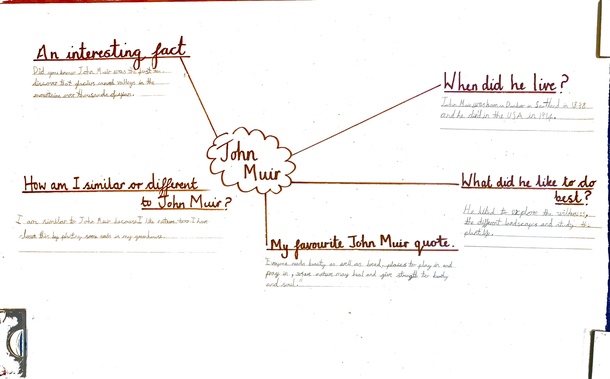 An interesting fact
Did you know John Muir was the first to
discover that glaciers carved valleys in the
mountains over thousands of years.
When did he live?
John Muir was born in Dunbar in Scotland in 1838
and he died in the USA in 1914.
John
Muir
How am I similar or different
to John Muir?
I am similar to John Muir because I like nature too. I have
shown this by planting some seeds in my greenhouse.
What did he like to do
best?
He liked to explore the wilderness,
the different landscapes and study the
plantlife.
My favourite John Muir quote.
"Everyone needs beauty as well as bread, places to play in and
pray in, where nature may heal and give strength to body
and soul."